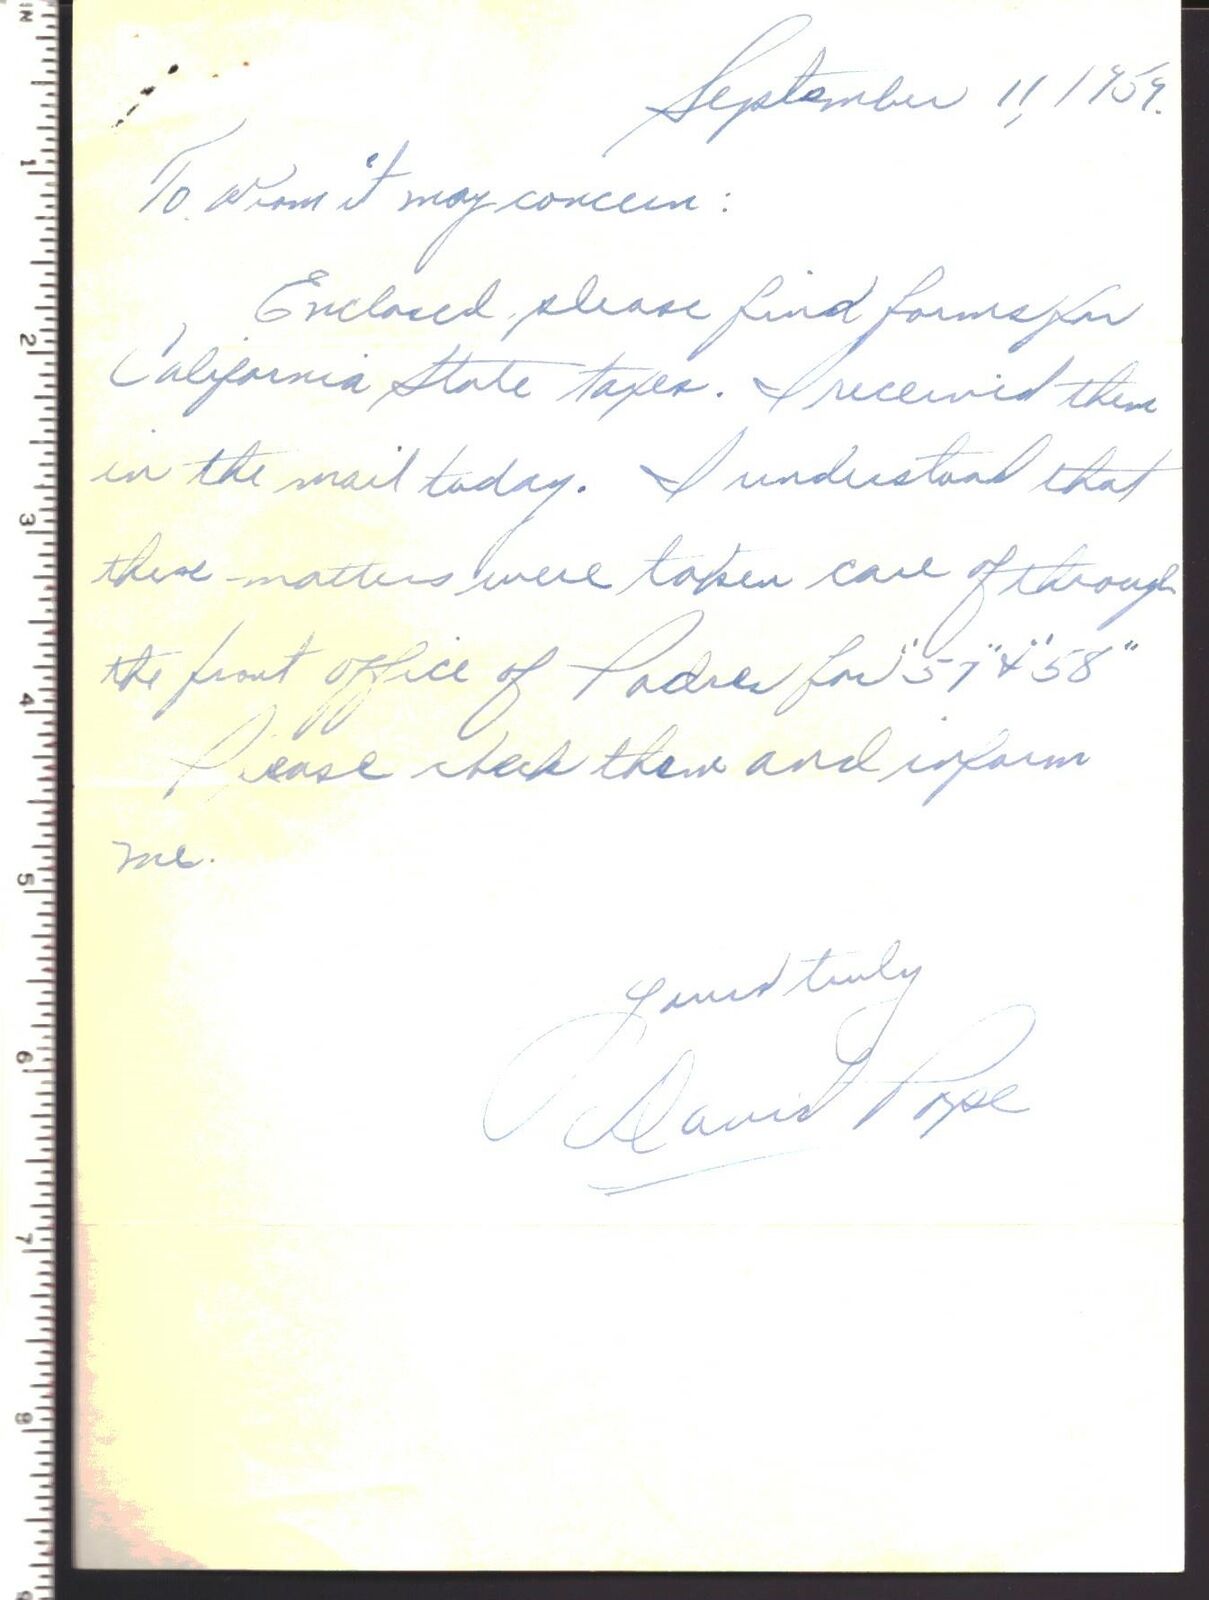 September 11, 1959.
To Whom it may concern:
Enclosed, please find forms for
California State taxes. I received them
in the mail today. I understood that
these matters were taken care of through
the front office of Padres for "57" & "58"
Please check them and inform
me.
Yours truly
David Pope
IN
1
2
3
4
5
6
7
8
9